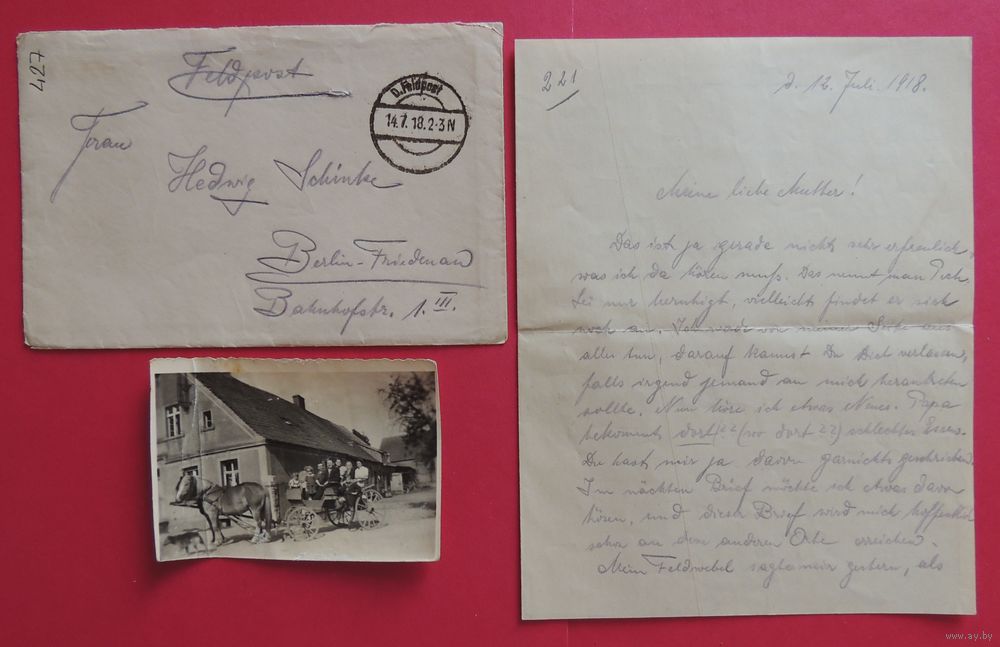 427
Feldpost
D. Feldpost
14.7.18.2-3N
Frau
Hedwig Schinke
Berlin-Friedenau
Bahnhofstr. 1. III.
221
d. 12. Juli. 1918.
Meine liebe Mutter!
Das ist ja gerade nicht sehr erfreulich,
was ich da hören muß. Das nennt man Pech.
Sei nur beruhigt, vielleicht findet er sich
noch an. Ich werde von meiner Seite aus
alles tun, darauf kannst Du Dich verlassen,
falls irgend jemand an mich herantreten
sollte. Nun höre ich etwas Neues. Papa
bekommt dort (wo dort ??) schlechtes Essen.
Du hast mir ja davon garnichts geschrieben.
Im nächsten Brief möchte ich etwas davon
hören, und dieser Brief wird mich hoffentlich
schon an dem anderen Orte erreichen.
Mein Feldwebel sagte mir gestern, als
www.ay.by